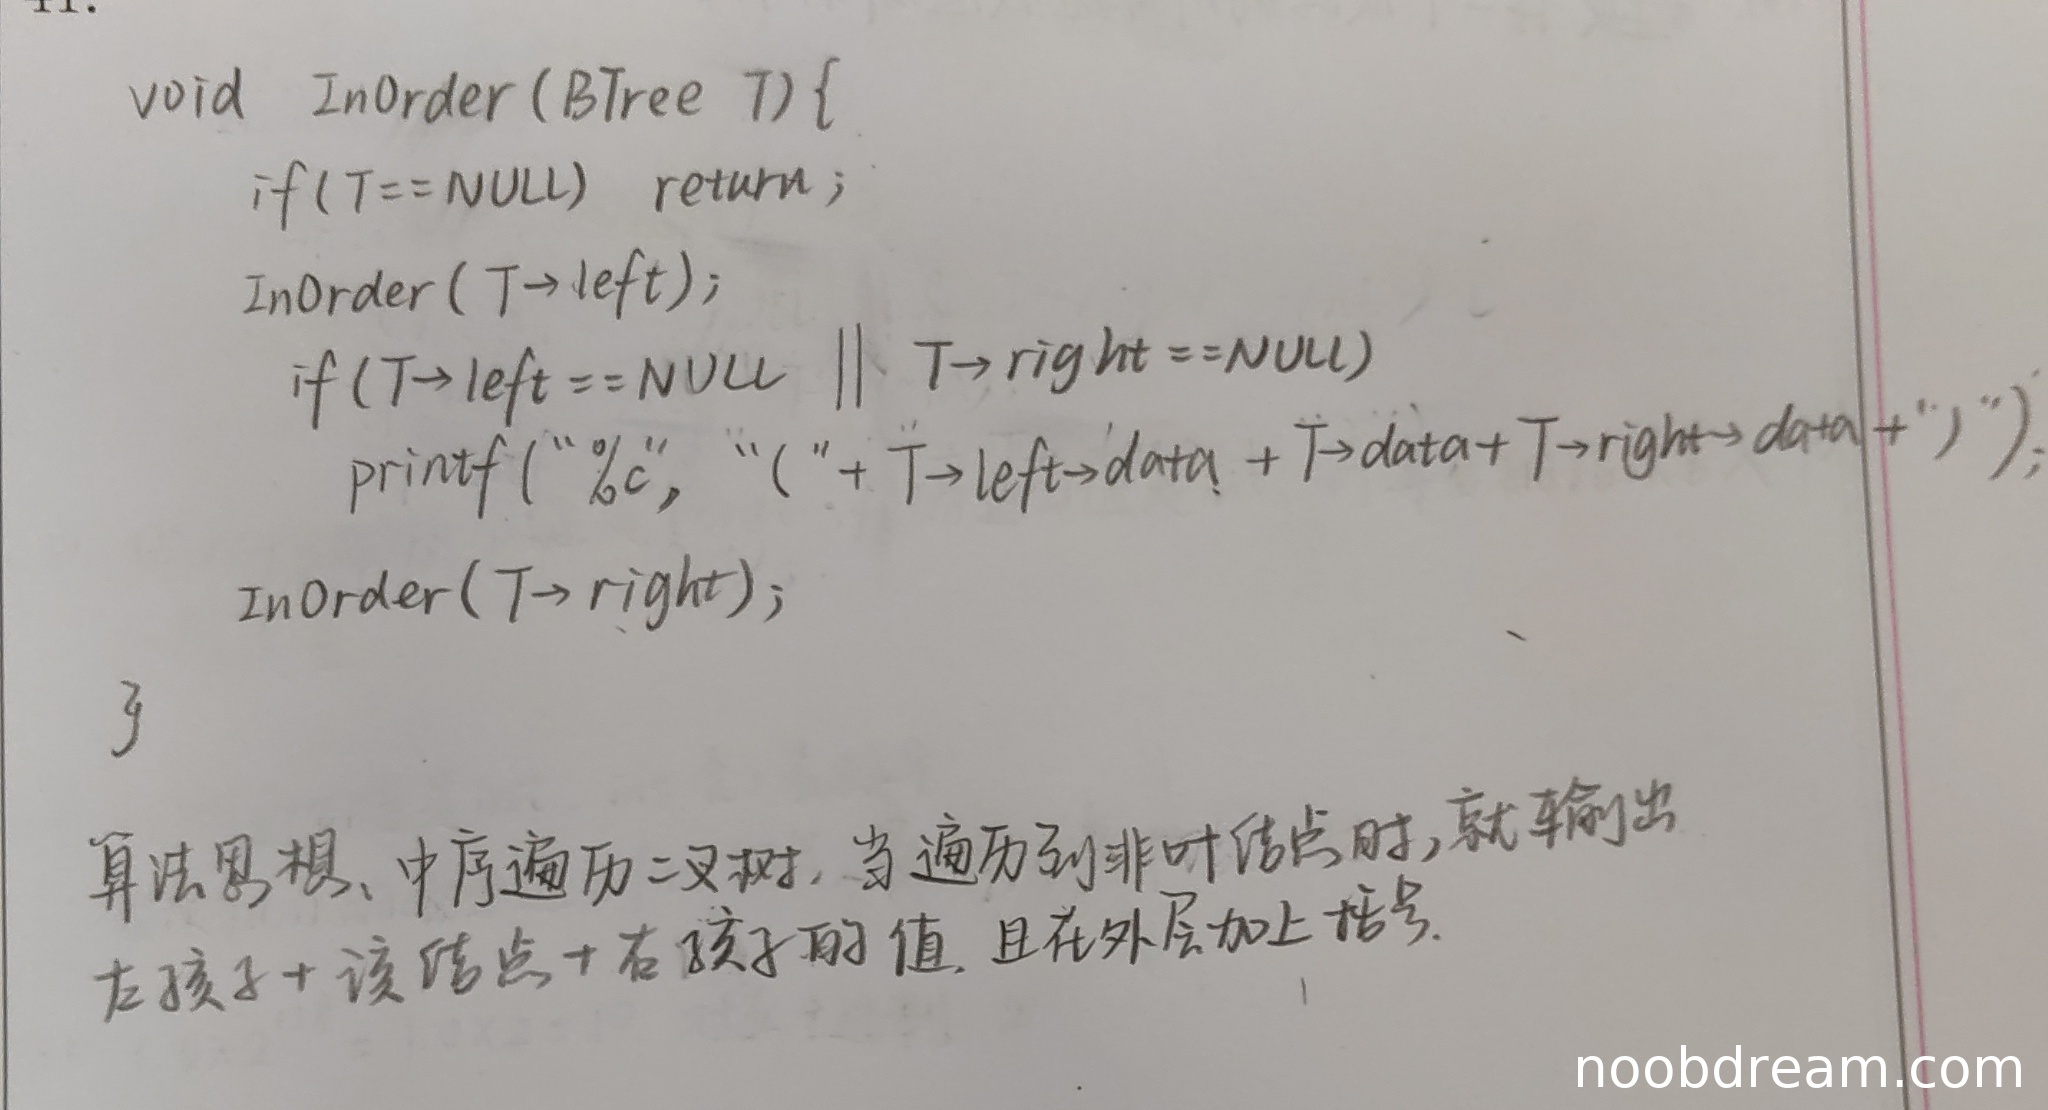 41.
void InOrder(BTree T){
if(T==NULL) return;
InOrder(T→left);
if(T→left==NULL || T→right==NULL)
printf("%c", "("+T→left→data+T→data+T→right→data+")");
InOrder(T→right);
}
算法思想、中序遍历二叉树.当遍历到非叶结点时,就输出
左孩子+该结点+右孩子的值.且在外层加上括号.
noobdream.com